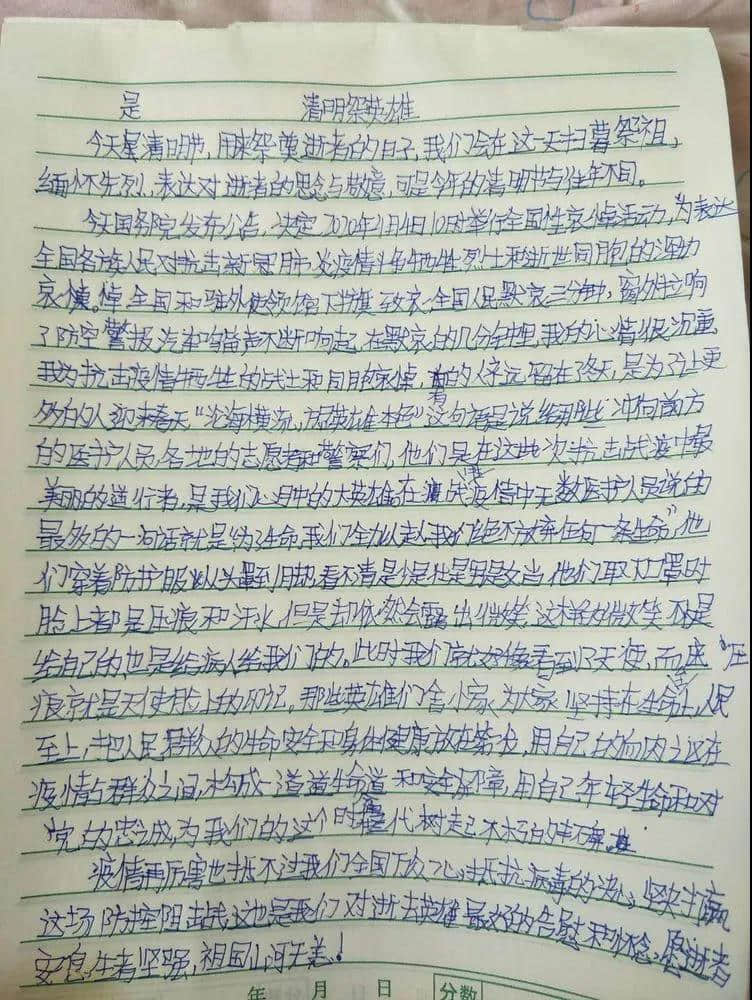 是 清明祭英雄
今天是清明节,用来祭奠逝者的日子,我们会在这一天扫墓祭祖,
缅怀先烈,表达对逝者的思念与敬意,可是今年的清明节与往年不同。
今天国务院发布公告,决定2020年4月4日10时举行全国性哀悼活动,为表达
全国各族人民对抗击新冠肺炎疫情斗争牺牲烈士和逝世同胞的深切
哀悼。全国和驻外使领馆下半旗致哀,全国人民默哀三分钟,窗外响
了防空警报,汽车鸣笛声不断响起,在默哀的几分钟里,我的心情很沉重,
我为抗击疫情牺牲的战士和同胞哀悼,有的人永远留在了冬天,是为了让更
多的人迎来春天"沧海横流,方显英雄本色"这句话是说给那些冲向前方
的医护人员,各地的志愿者和警察们,他们是在这次抗击战疫中最
美丽的逆行者,是我们心目中的大英雄,在疫情中无数医护人员说的
最多的一句话就是"为了生命,我们全力以赴,我们绝不放弃任何一条生命",他
们穿着防护服从头罩到脚,看不清是少是壮是男是女,当他们取下口罩时
脸上都是压痕和汗水,但是却依然会露出微笑,这样的微笑不是
给自己的,也是给病人给我们的。此时我们就好像看到了天使,而压
痕就是天使脸上的印记。那些英雄们舍小家,为大家,坚持在生命上,人民
至上,把人民群众的生命安全和身体健康放在第一,用自己的血肉之躯在
疫情与群众之间,构成一道道生命道和安全屏障,用自己年轻生命和对
党的忠诚,为我们的这个时代树起不朽的丰碑。
疫情再厉害也抵不过我们全国万众一心抵抗病毒的决心,坚决打赢
这场防控阻击战,这也是我们对逝去英雄最好的告慰和怀念,愿逝者
安息,生者坚强,祖国山河无恙!
年 月 日 分数